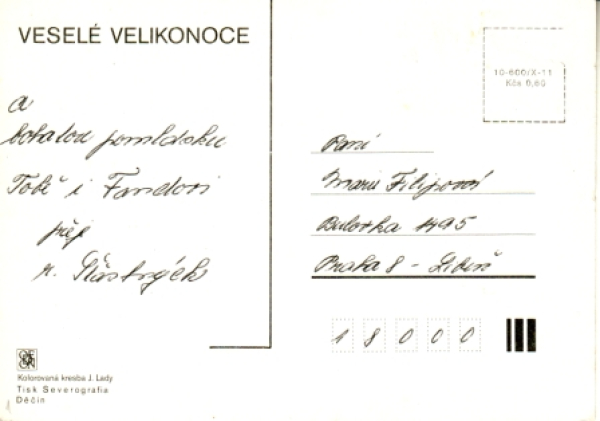 VESELÉ VELIKONOCE
a
bohatou pomlázku
Tobě i Fandovi
přej
10-600/X-11
Kčs 0,60
Paní
Marie Filipová
Bulovka 1495
Praha 8 - Libeň
18000
Kolorovaná kresba J. Lady
Tisk Severografia
Děčín